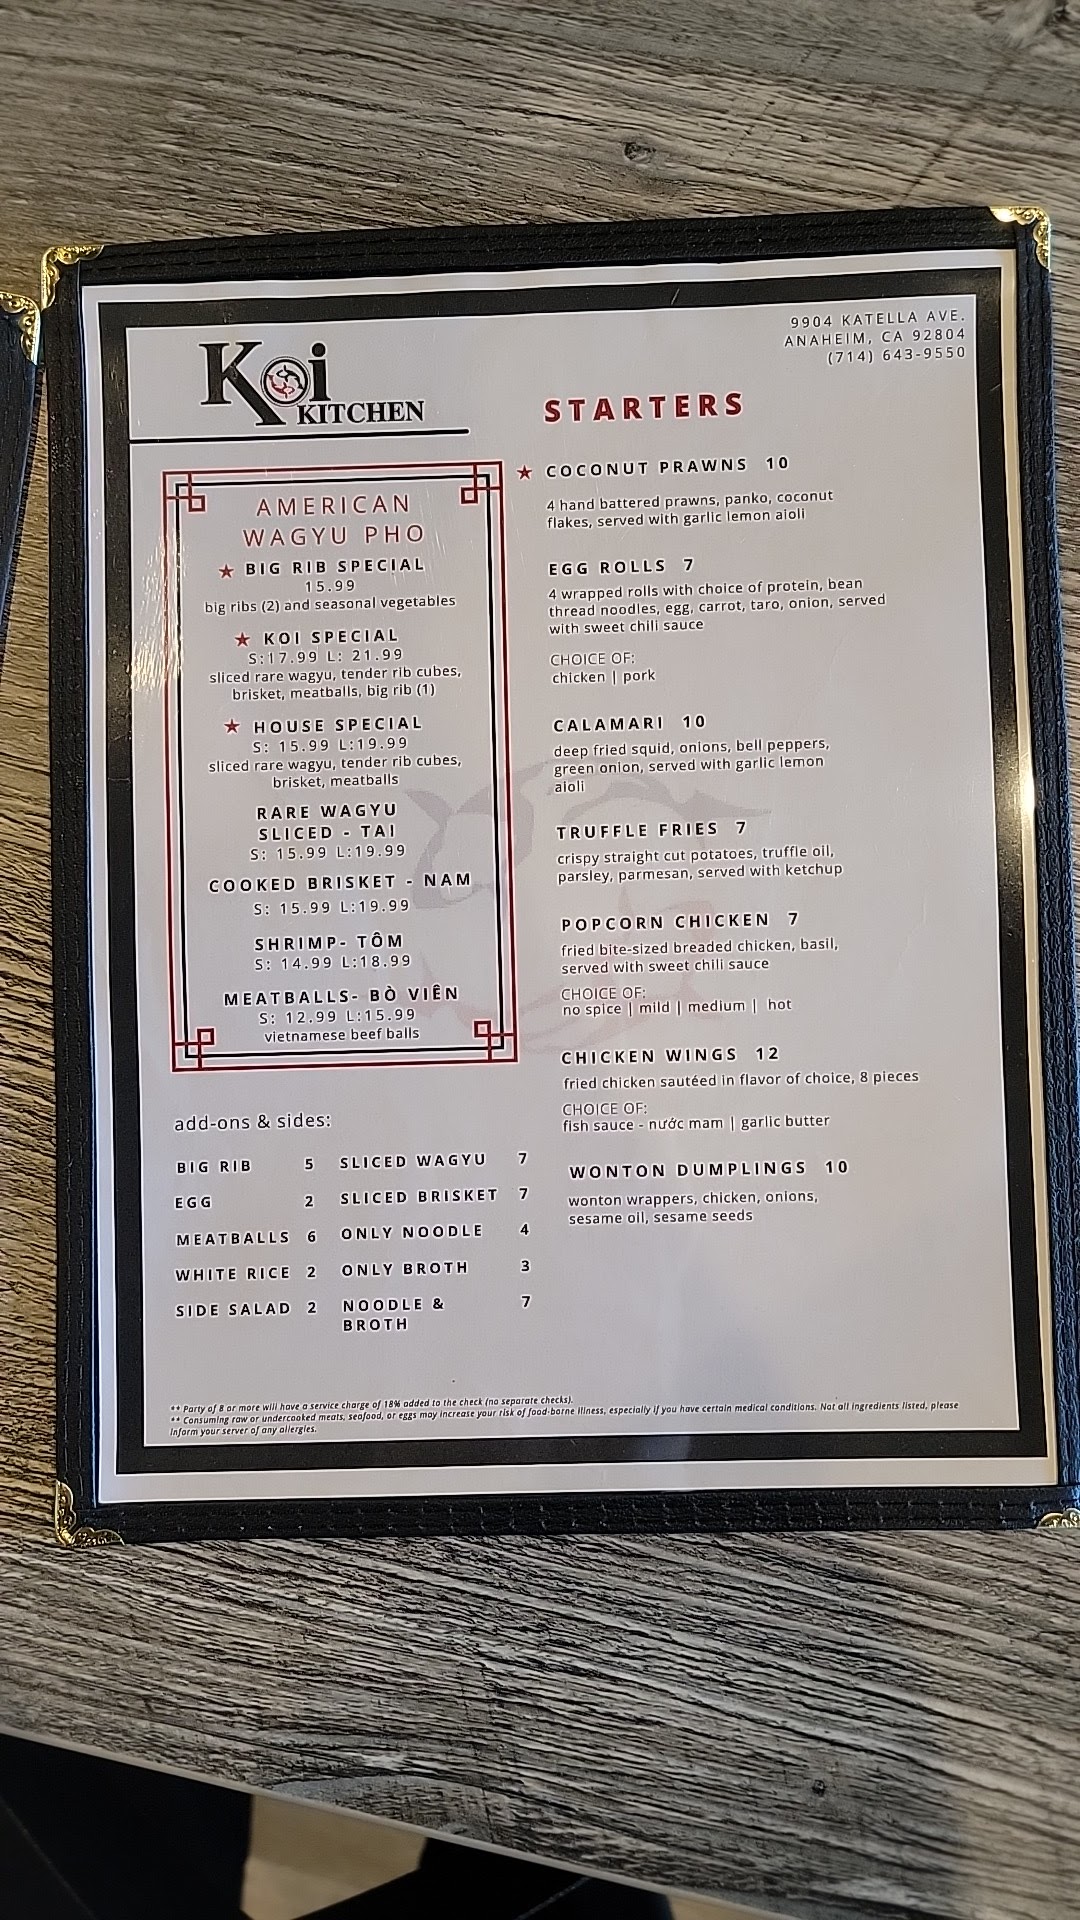 Koi
KITCHEN
9904 KATELLA AVE.
ANAHEIM, CA 92804
(714) 643-9550
AMERICAN
WAGYU PHO
★ BIG RIB SPECIAL
15.99
big ribs (2) and seasonal vegetables
★ KOI SPECIAL
S:17.99 L: 21.99
sliced rare wagyu, tender rib cubes,
brisket, meatballs, big rib (1)
★ HOUSE SPECIAL
S: 15.99 L:19.99
sliced rare wagyu, tender rib cubes,
brisket, meatballs
RARE WAGYU
SLICED - TAI
S: 15.99 L:19.99
COOKED BRISKET - NAM
S: 15.99 L:19.99
SHRIMP- TÔM
S: 14.99 L:18.99
MEATBALLS- BÒ VIÊN
S: 12.99 L:15.99
vietnamese beef balls
add-ons & sides:
BIG RIB 5 SLICED WAGYU 7
EGG 2 SLICED BRISKET 7
MEATBALLS 6 ONLY NOODLE 4
WHITE RICE 2 ONLY BROTH 3
SIDE SALAD 2 NOODLE & 7
BROTH
STARTERS
★ COCONUT PRAWNS 10
4 hand battered prawns, panko, coconut
flakes, served with garlic lemon aioli
EGG ROLLS 7
4 wrapped rolls with choice of protein, bean
thread noodles, egg, carrot, taro, onion, served
with sweet chili sauce
CHOICE OF:
chicken | pork
CALAMARI 10
deep fried squid, onions, bell peppers,
green onion, served with garlic lemon
aioli
TRUFFLE FRIES 7
crispy straight cut potatoes, truffle oil,
parsley, parmesan, served with ketchup
POPCORN CHICKEN 7
fried bite-sized breaded chicken, basil,
served with sweet chili sauce
CHOICE OF:
no spice | mild | medium | hot
CHICKEN WINGS 12
fried chicken sautéed in flavor of choice, 8 pieces
CHOICE OF:
fish sauce - nước mam | garlic butter
WONTON DUMPLINGS 10
wonton wrappers, chicken, onions,
sesame oil, sesame seeds
** Party of 8 or more will have a service charge of 18% added to the check (no separate checks).
** Consuming raw or undercooked meats, seafood, or eggs may increase your risk of food-borne illness, especially if you have certain medical conditions. Not all ingredients listed, please
inform your server of any allergies.